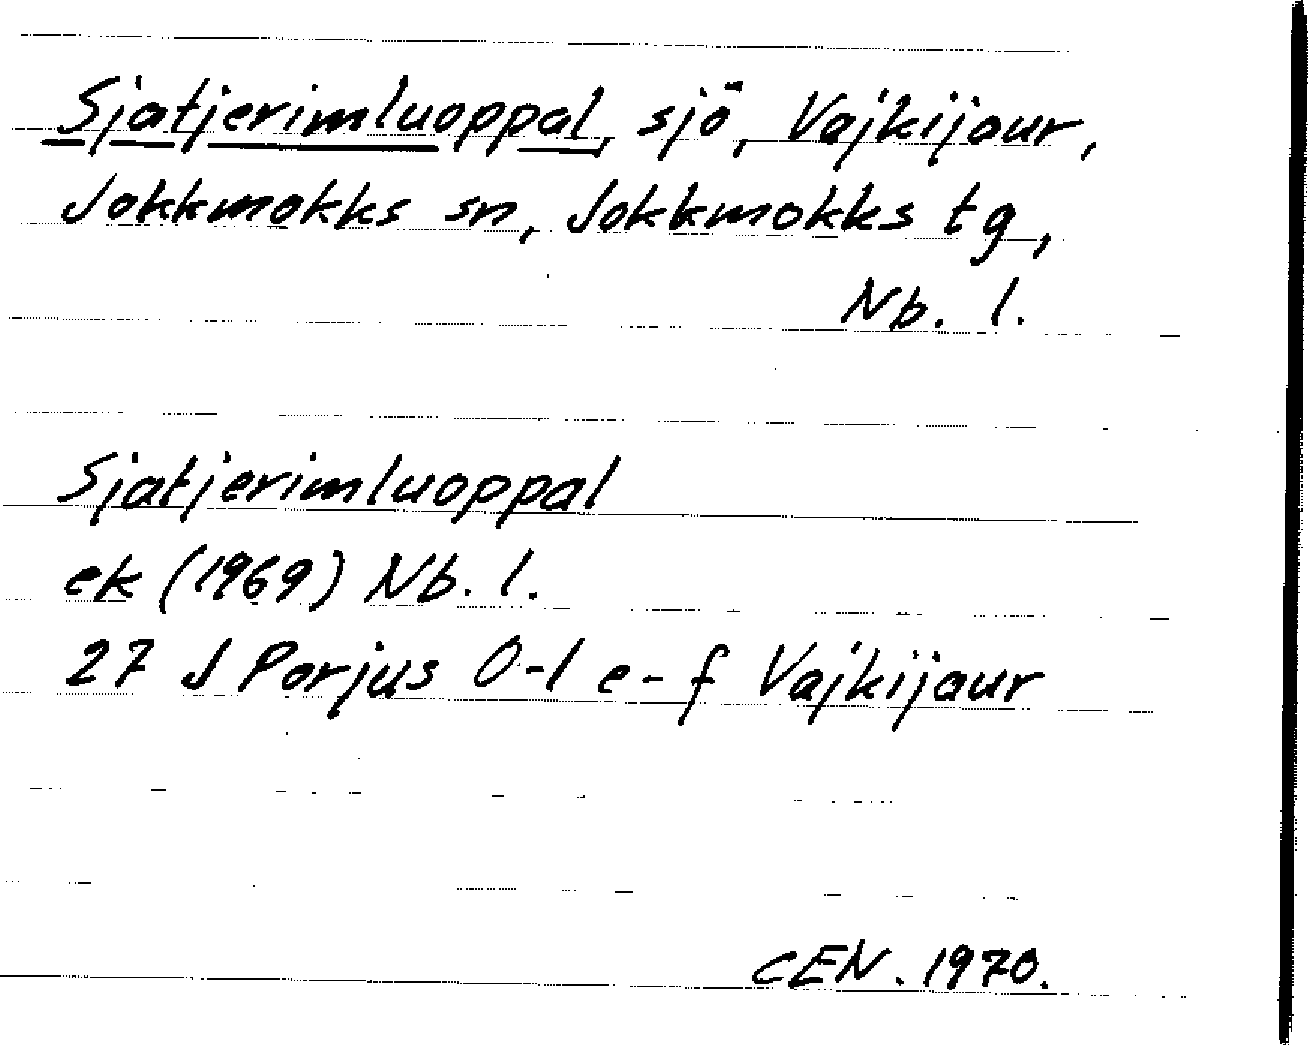 Sjatjerimluoppal, sjö, Vajkijaur,
Jokkmokks sn, Jokkmokks tg,
Nb. l.
Sjatjerimluoppal
ek (1969) Nb. l.
27 J Porjus 0-1 e-f Vajkijaur
CEN. 1970.